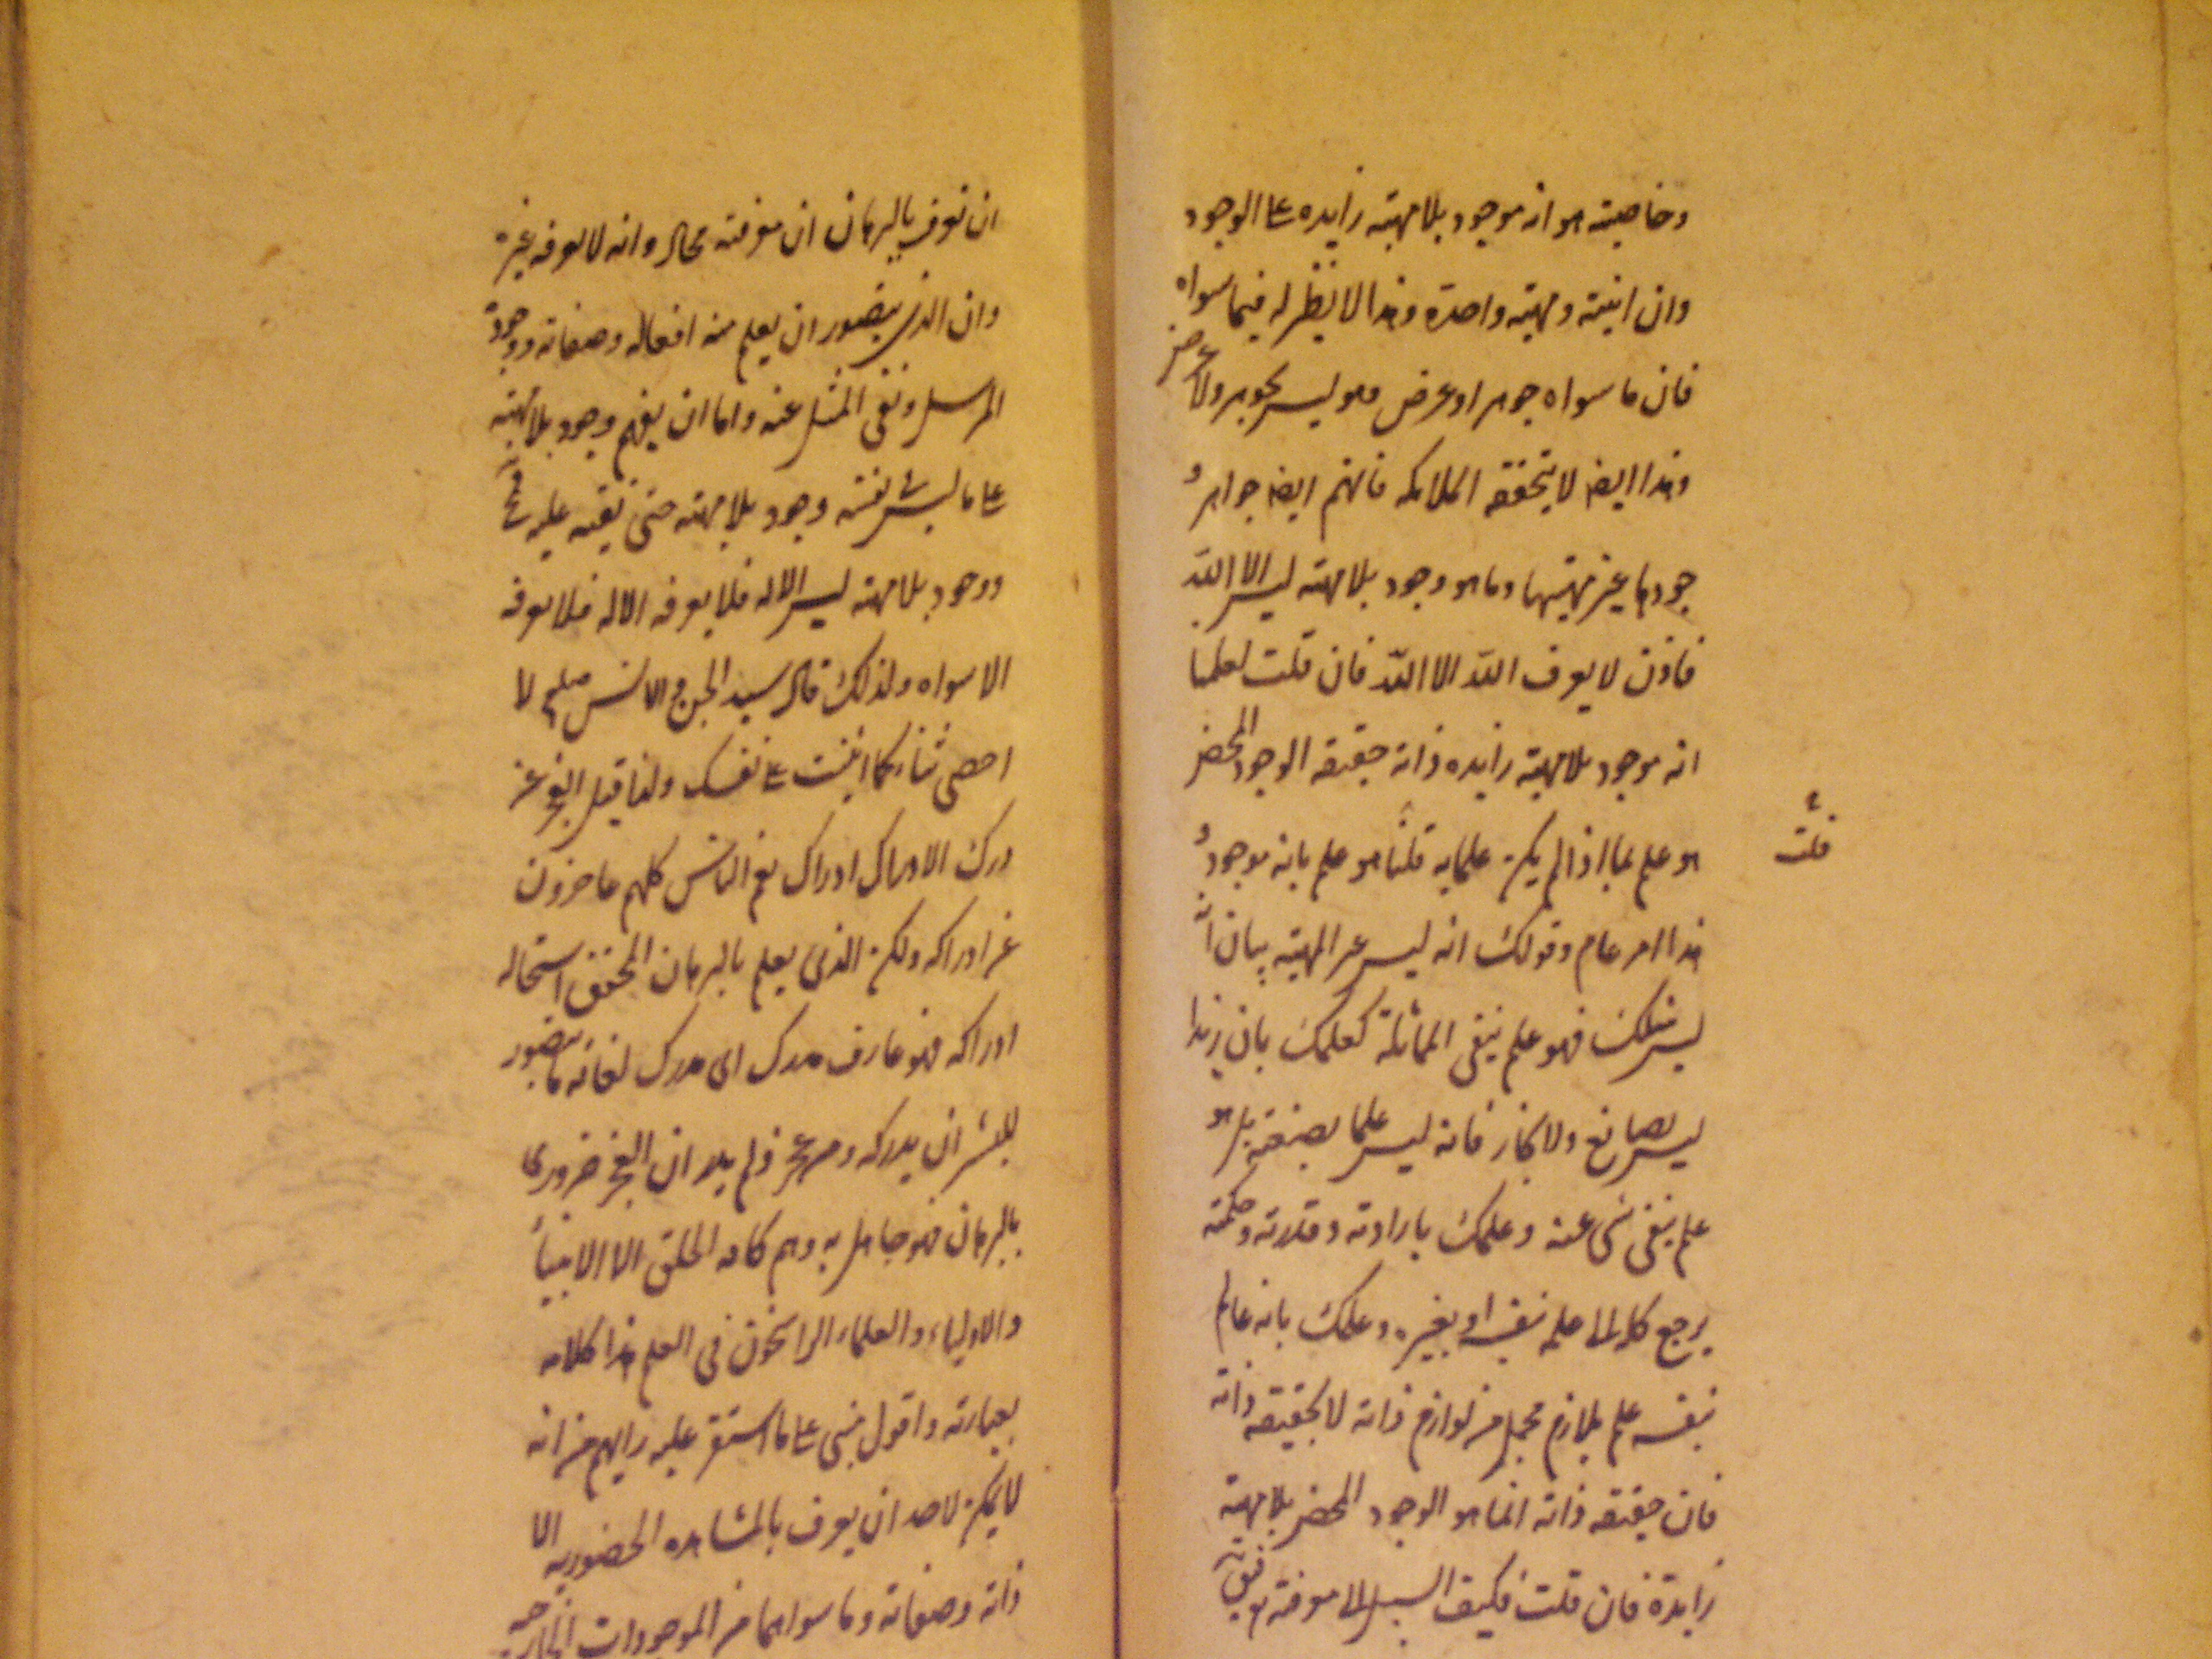 وخاصيته هو انه موجود بلا مهية زايده على الوجود
وان انيته ومهيته واحدة وهذا لا نظير له فيما سواه
فان ما سواه جوهر او عرض وهو ليس بجوهر ولا عرض
وهذا ايضا لا يتحقق الملائكه فانهم ايضا جواهر و
جودها غير مهيتها وما هو وجود بلا مهية ليس الا الله
فاذن لا يعرف الله الا الله فان قلت لعلمنا
انه موجود بلا مهية زايده ذاته حقيقه الوجود المحض
هو علم بما اذا لم يكن علما به قلنا هو علم بانه موجود و
قلت
هذا امر عام وقولك انه ليس غير المهية بيان انه
ليس مثلك فهو علم بنفى المماثلة كعلمك بان زيدا
ليس بصانع ولا نجار فانه ليس علما بصنعته بل هو
علم بنفى شى عنه وعلمك بارادته وقدرته وحكمته
يرجع كله الى علمه بنفسه او بغيره وعلمك بانه عالم
بنفسه علم بلازم مجمل من لوازم ذاته لا بحقيقة ذاته
فان حقيقه ذاته انما هو الوجود المحض بلا مهية
زايدة فان قلت فكيف السبيل الى معرفته
ان تعرف بالبرهان ان معرفته محال وانه لا يعرفه غيره
وان الذى يتصور ان يعلم منه افعاله وصفاته ووجوده
المرسل ونفى المثل عنه واما ان يفهم وجود بلا مهية
على ما ليس فى نفسه وجود بلا مهية حتى يقيسه عليه فمح
ووجود بلا مهية ليس الا له فلا يعرفه الا له فلا يعرفه
الا سواه ولذلك قال سيد الجن والانس صلعم لا
احصى ثناء كما اثنيت على نفسك ولهذا قيل العجز عن
درك الادراك ادراك نعم الناس كلهم عاجزون
عن ادراكه ولكن الذى يعلم بالبرهان المحقق استحاله
ادراكه فهو عارف مدرك اى مدرك لغاية ما يتصور
للبشر ان يدركه ومن عجز ولم يدر ان العجز ضرورى
بالبرهان فهو جاهل به وهم كافه الخلق الا الانبياء
والاولياء والعلماء الراسخون فى العلم هذا كلامه
بعبارته واقول مبنى على ما استقر عليه رايهم من انه
لا يمكن لاحد ان يعرف بالمشاهده الحضوريه الا
ذاته وصفاته وما سواهما من الموجودات الخارجيه